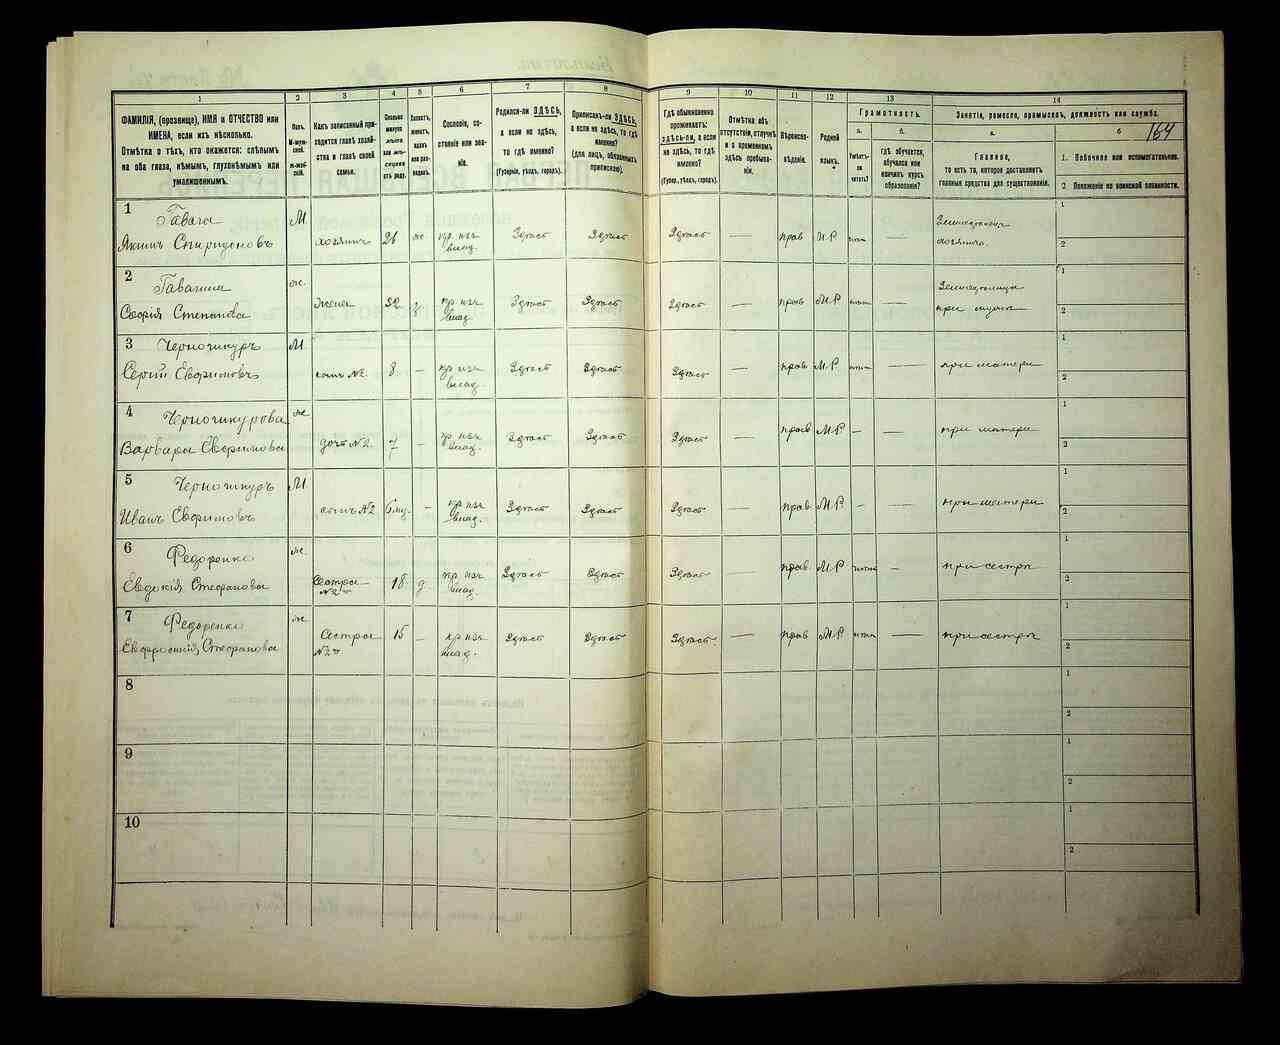 1
2
3
4
5
6
7
8
9
10
11
12
13
14
ФАМИЛІЯ, (прозвище), ИМЯ и ОТЧЕСТВО или
ИМЕНА, если ихъ нѣсколько.
Отмѣтка о тѣхъ, кто окажется: слѣпымъ
на оба глаза, нѣмымъ, глухонѣмымъ или
умалишеннымъ.
Полъ.
М-муж-
ской.
ж-жен-
скій.
Какъ записанный при-
ходится главѣ хозяй-
ства и главѣ своей
семьи.
Сколько
минуло
лѣтъ
или мѣ-
сяцевъ
отъ роду.
Холостъ,
женатъ,
вдовъ
или раз-
веденъ.
Сословіе, со-
стояніе или зва-
ніе.
Родился-ли ЗДѢСЬ,
а если не здѣсь,
то гдѣ именно?
(Губернія, уѣздъ, городъ).
Приписанъ-ли ЗДѢСЬ,
а если не здѣсь, то гдѣ
именно?
(для лицъ, обязанныхъ
припискою).
Гдѣ обыкновенно
проживаетъ:
здѣсь-ли, а если
не здѣсь, то гдѣ
именно?
(Губер., уѣздъ, городъ).
Отмѣтка объ
отсутствіи, отлучкѣ
и о временномъ
здѣсь пребыва-
ніи.
Вѣроиспо-
вѣданіе.
Родной
языкъ.
Грамотность.
а.
б.
Умѣетъ-
ли
читать?
гдѣ обучается,
обучался или
кончилъ курсъ
образованія?
Занятіе, ремесло, промыселъ, должность или служба.
а.
б
164
Главное,
то есть то, которое доставляетъ
главныя средства для существованія.
1. Побочное или вспомогательное.
2 Положеніе по воинской повинности.
1 М. 1
Якимъ Спиридоновъ хозяинъ 26 Здѣсь Здѣсь Здѣсь — прав М.Р. — хозяинъ. 2
2 ж. 1
Софія Степанова жена 32 Здѣсь Здѣсь Здѣсь — прав М.Р. — 2
3 Черногикуръ М 1
Сергій Евфимовъ 8 — Здѣсь Здѣсь Здѣсь — прав М.Р. — при матери 2
4 Черногикурова ж 1
Варвара Евфимова дочь №2. 7 — Здѣсь Здѣсь Здѣсь — прав М.Р. — — при матери 2
5 Черногикуръ М 1
Иванъ Евфимовъ сынъ №2 — Здѣсь Здѣсь Здѣсь — прав М.Р. — — при матери 2
6 Федоренко ж. 1
Евдокія Стефанова Сестра 18 д Здѣсь Здѣсь Здѣсь — прав М.Р. — при сестрѣ 2
7 Федоренко ж. 1
Евфросинія Стефанова Сестра 15 — Здѣсь Здѣсь Здѣсь — прав М.Р. — при сестрѣ 2
8 1
2
9 1
2
10 1
2